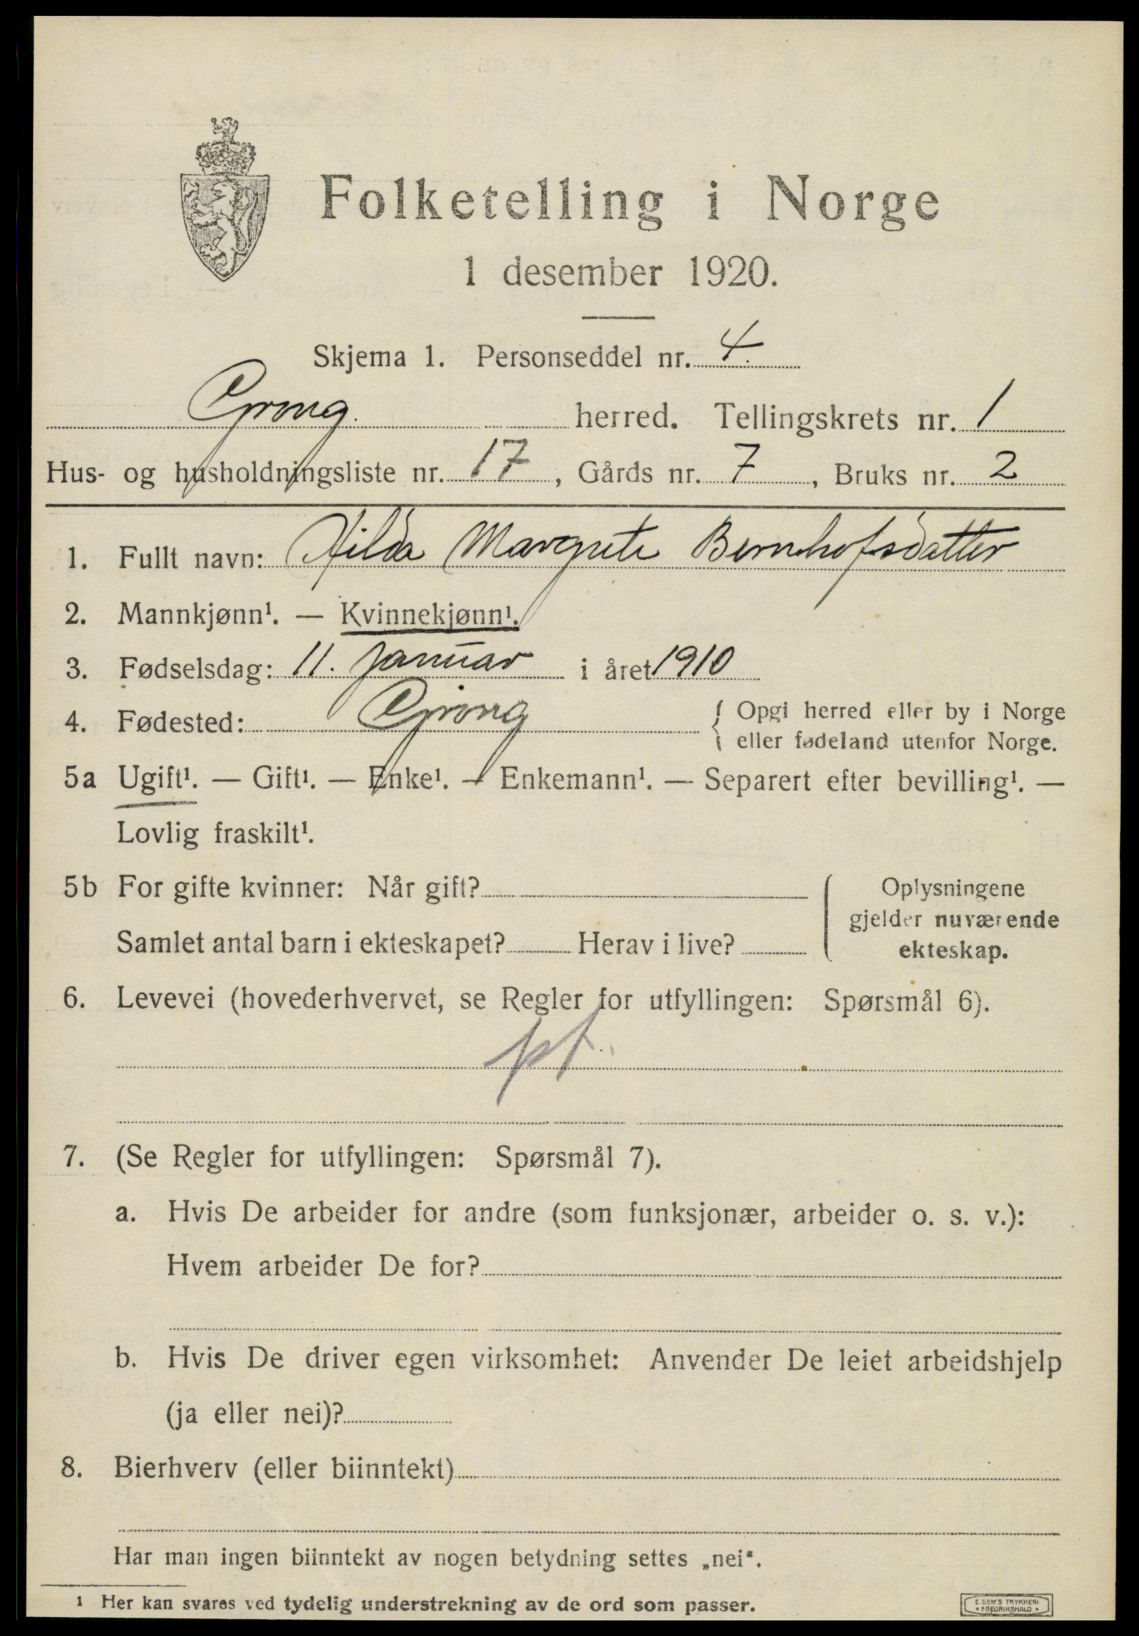 Folketelling i Norge
1 desember 1920.
Skjema 1. Personseddel nr. 4.
Grong. herred. Tellingskrets nr. 1
Hus- og husholdningsliste nr. 17, Gårds nr. 7, Bruks nr. 2
1. Fullt navn: Hilda Margrete Bernhofsdatter
2. Mannkjønn¹. — Kvinnekjønn¹.
3. Fødselsdag: 11. januar i året 1910
4. Fødested: Grong { Opgi herred eller by i Norge
eller fødeland utenfor Norge.
5a Ugift¹. — Gift¹. — Enke¹. — Enkemann¹. — Separert efter bevilling¹. —
Lovlig fraskilt¹.
5b For gifte kvinner: Når gift?
Samlet antal barn i ekteskapet? Herav i live?
Oplysningene
gjelder nuværende
ekteskap.
6. Levevei (hovederhvervet, se Regler for utfyllingen: Spørsmål 6).
pt.
7. (Se Regler for utfyllingen: Spørsmål 7).
a. Hvis De arbeider for andre (som funksjonær, arbeider o. s. v.):
Hvem arbeider De for?
b. Hvis De driver egen virksomhet: Anvender De leiet arbeidshjelp
(ja eller nei)?
8. Bierhverv (eller biinntekt)
Har man ingen biinntekt av nogen betydning settes „nei“.
¹ Her kan svares ved tydelig understrekning av de ord som passer.
E. SEM'S TRYKKERI
FREDRIKSHALD